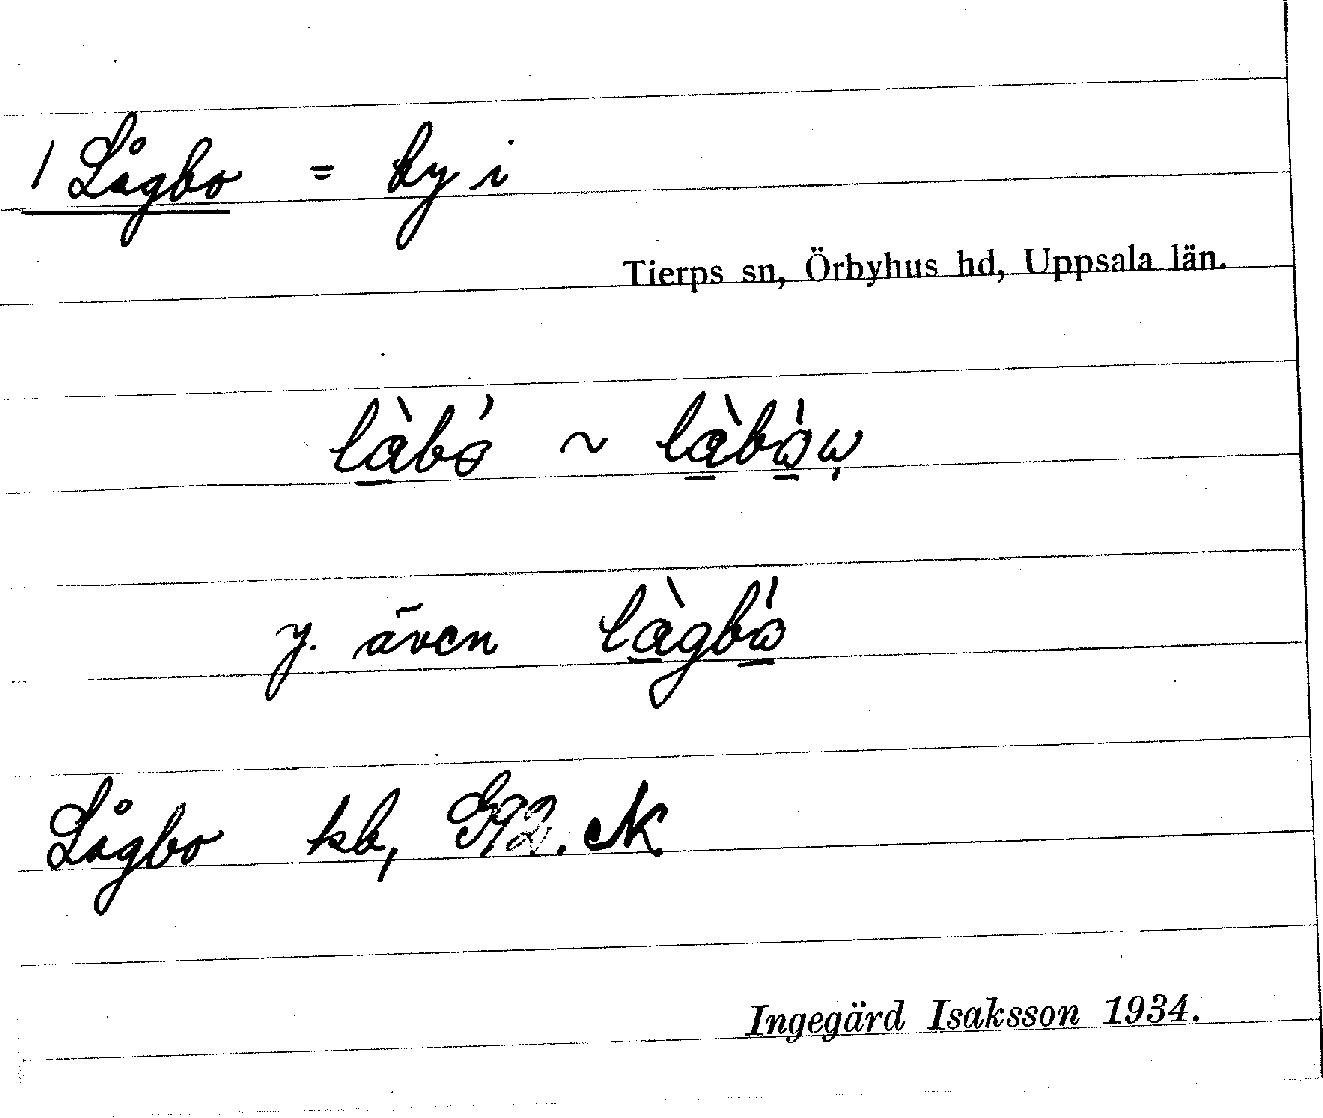 1 Lågbo = by i
Tierps sn, Örbyhus hd, Uppsala län.
là̱bó ~ là̱bò̱w̩
y. även là̱gbó̱
Lågbo kb, G92. N
Ingegärd Isaksson 1934.